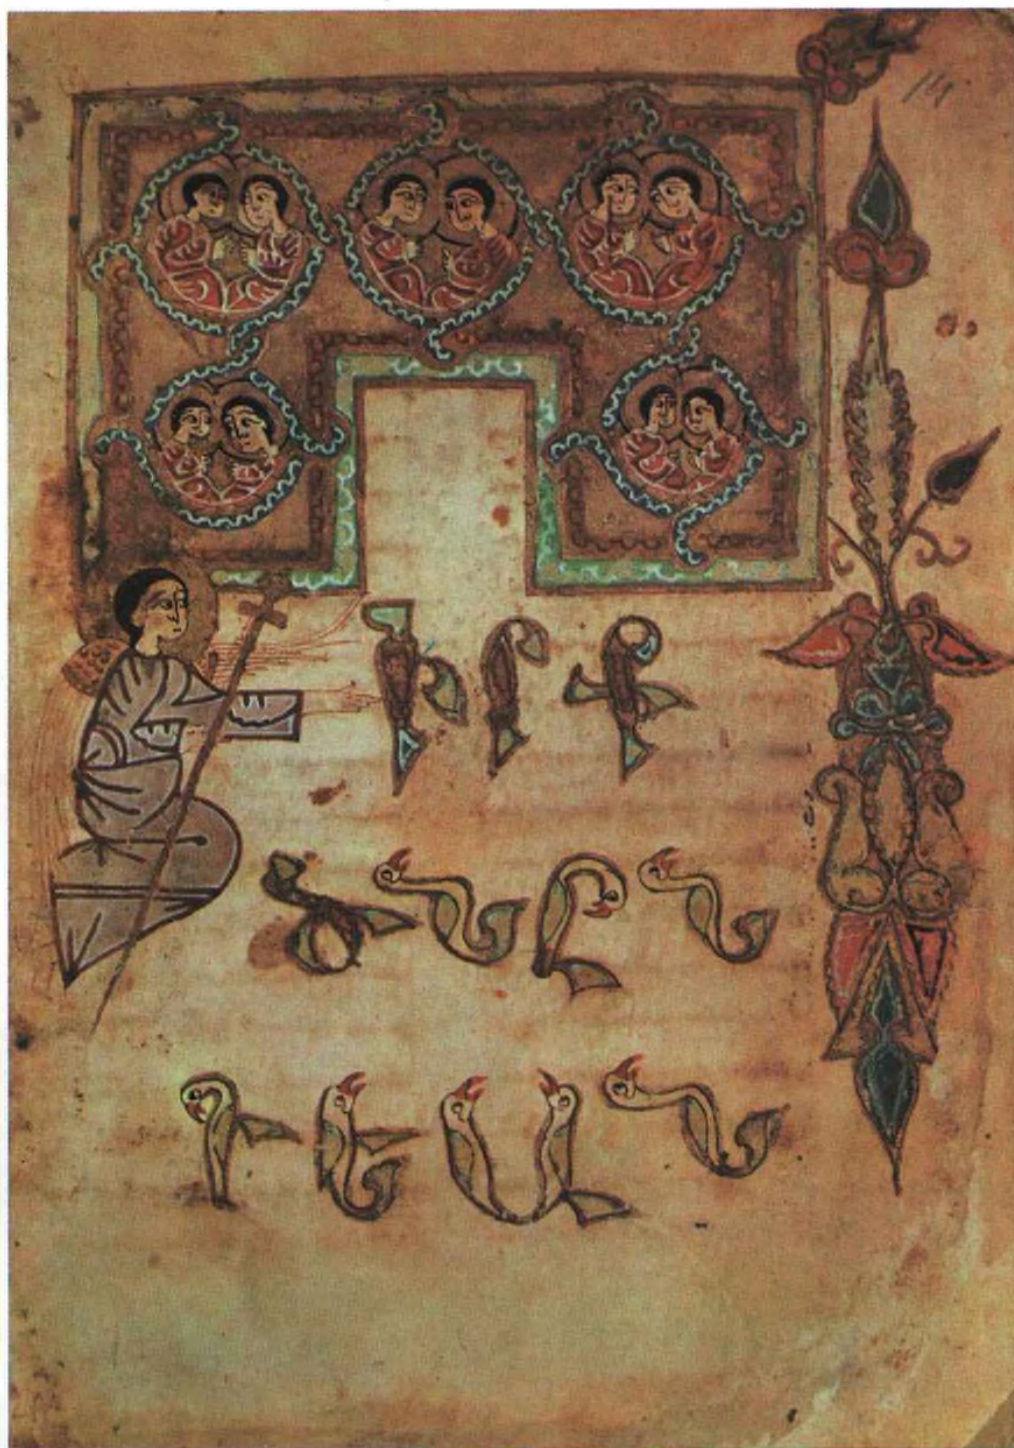 ԳԻՐՔ
ԾՆԸՆ
ԴԵԱՆ